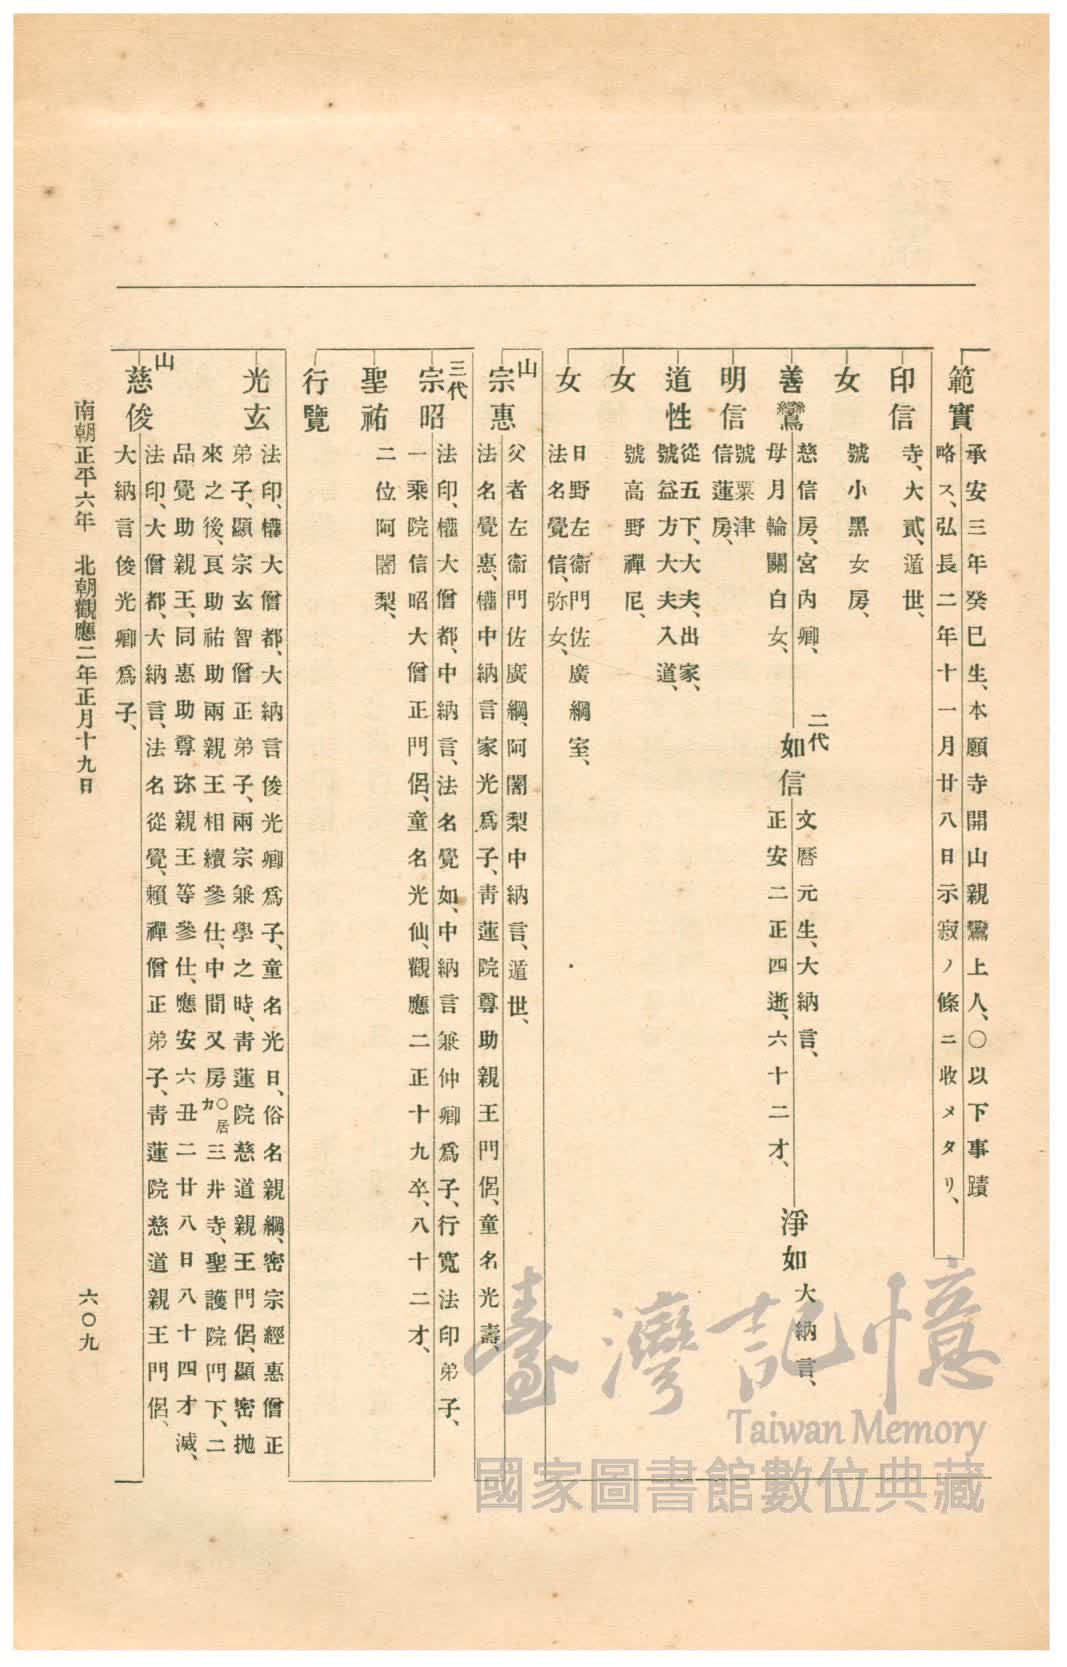 範實
承安三年癸巳生、本願寺開山親鸞上人、〇以下事蹟
略ス、弘長二年十一月廿八日示寂ノ條ニ收メタリ、
印信
寺、大貳、遁世、
女
號小黑女房、
善鸞
慈信房、宮內卿、
母月輪關白女、
二代
如信
文曆元生、大納言、
正安二正四逝、六十二才、
淨如
大納言、
明信
號粟津
信蓮房、
道性
從五下、大夫、出家、
號益方大夫入道、
女
號高野禪尼、
女
日野左衞門佐廣綱室、
法名覺信、弥女、
山
宗惠
父者左衞門佐廣綱、阿闍梨中納言、遁世、
法名覺惠、權中納言家光爲子、青蓮院尊助親王門侶、童名光壽、
三代
宗昭
法印、權大僧都、中納言、法名覺如、中納言兼仲卿爲子、行寬法印弟子、
一乘院信昭大僧正門侶、童名光仙、觀應二正十九卒、八十二才、
聖祐
二位阿闍梨、
行覽
光玄
法印、權大僧都、大納言俊光卿爲子、童名光日、俗名親綱、密宗經惠僧正
弟子、顯宗玄智僧正弟子、兩宗兼學之時、青蓮院慈道親王門侶、顯密抛
來之後、良助祐助兩親王相續參仕、中間又房〇居カ三井寺、聖護院門下、二
品覺助親王、同惠助尊珍親王等參仕、應安六丑二廿八日八十四才滅、
山
慈俊
法印、大僧都、大納言、法名從覺、賴禪僧正弟子、青蓮院慈道親王門侶、
大納言俊光卿爲子、
南朝正平六年　北朝觀應二年正月十九日
六〇九
臺灣記憶
Taiwan Memory
國家圖書館數位典藏